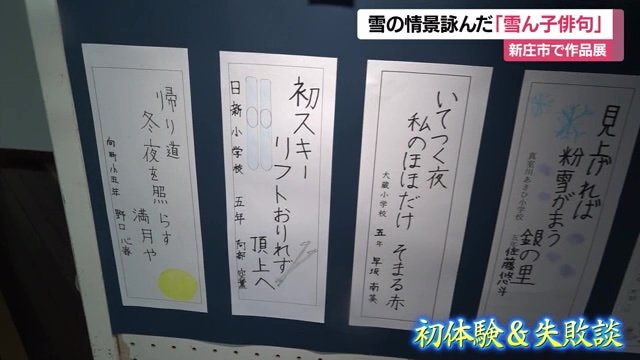 雪の情景詠んだ「雪ん子俳句」
新庄市で作品展
見上げれば
粉雪がまう
銀の里
真室川あさひ小学校
五年
佐藤悠斗
いてつく夜
私のほほだけ
そまる赤
大蔵小学校
五年
早坂南美
初スキー
リフトおりれず
頂上へ
日新小学校
五年
阿部
帰り道
冬夜を照らす
満月や
向町小五年
野口心春
初体験&失敗談